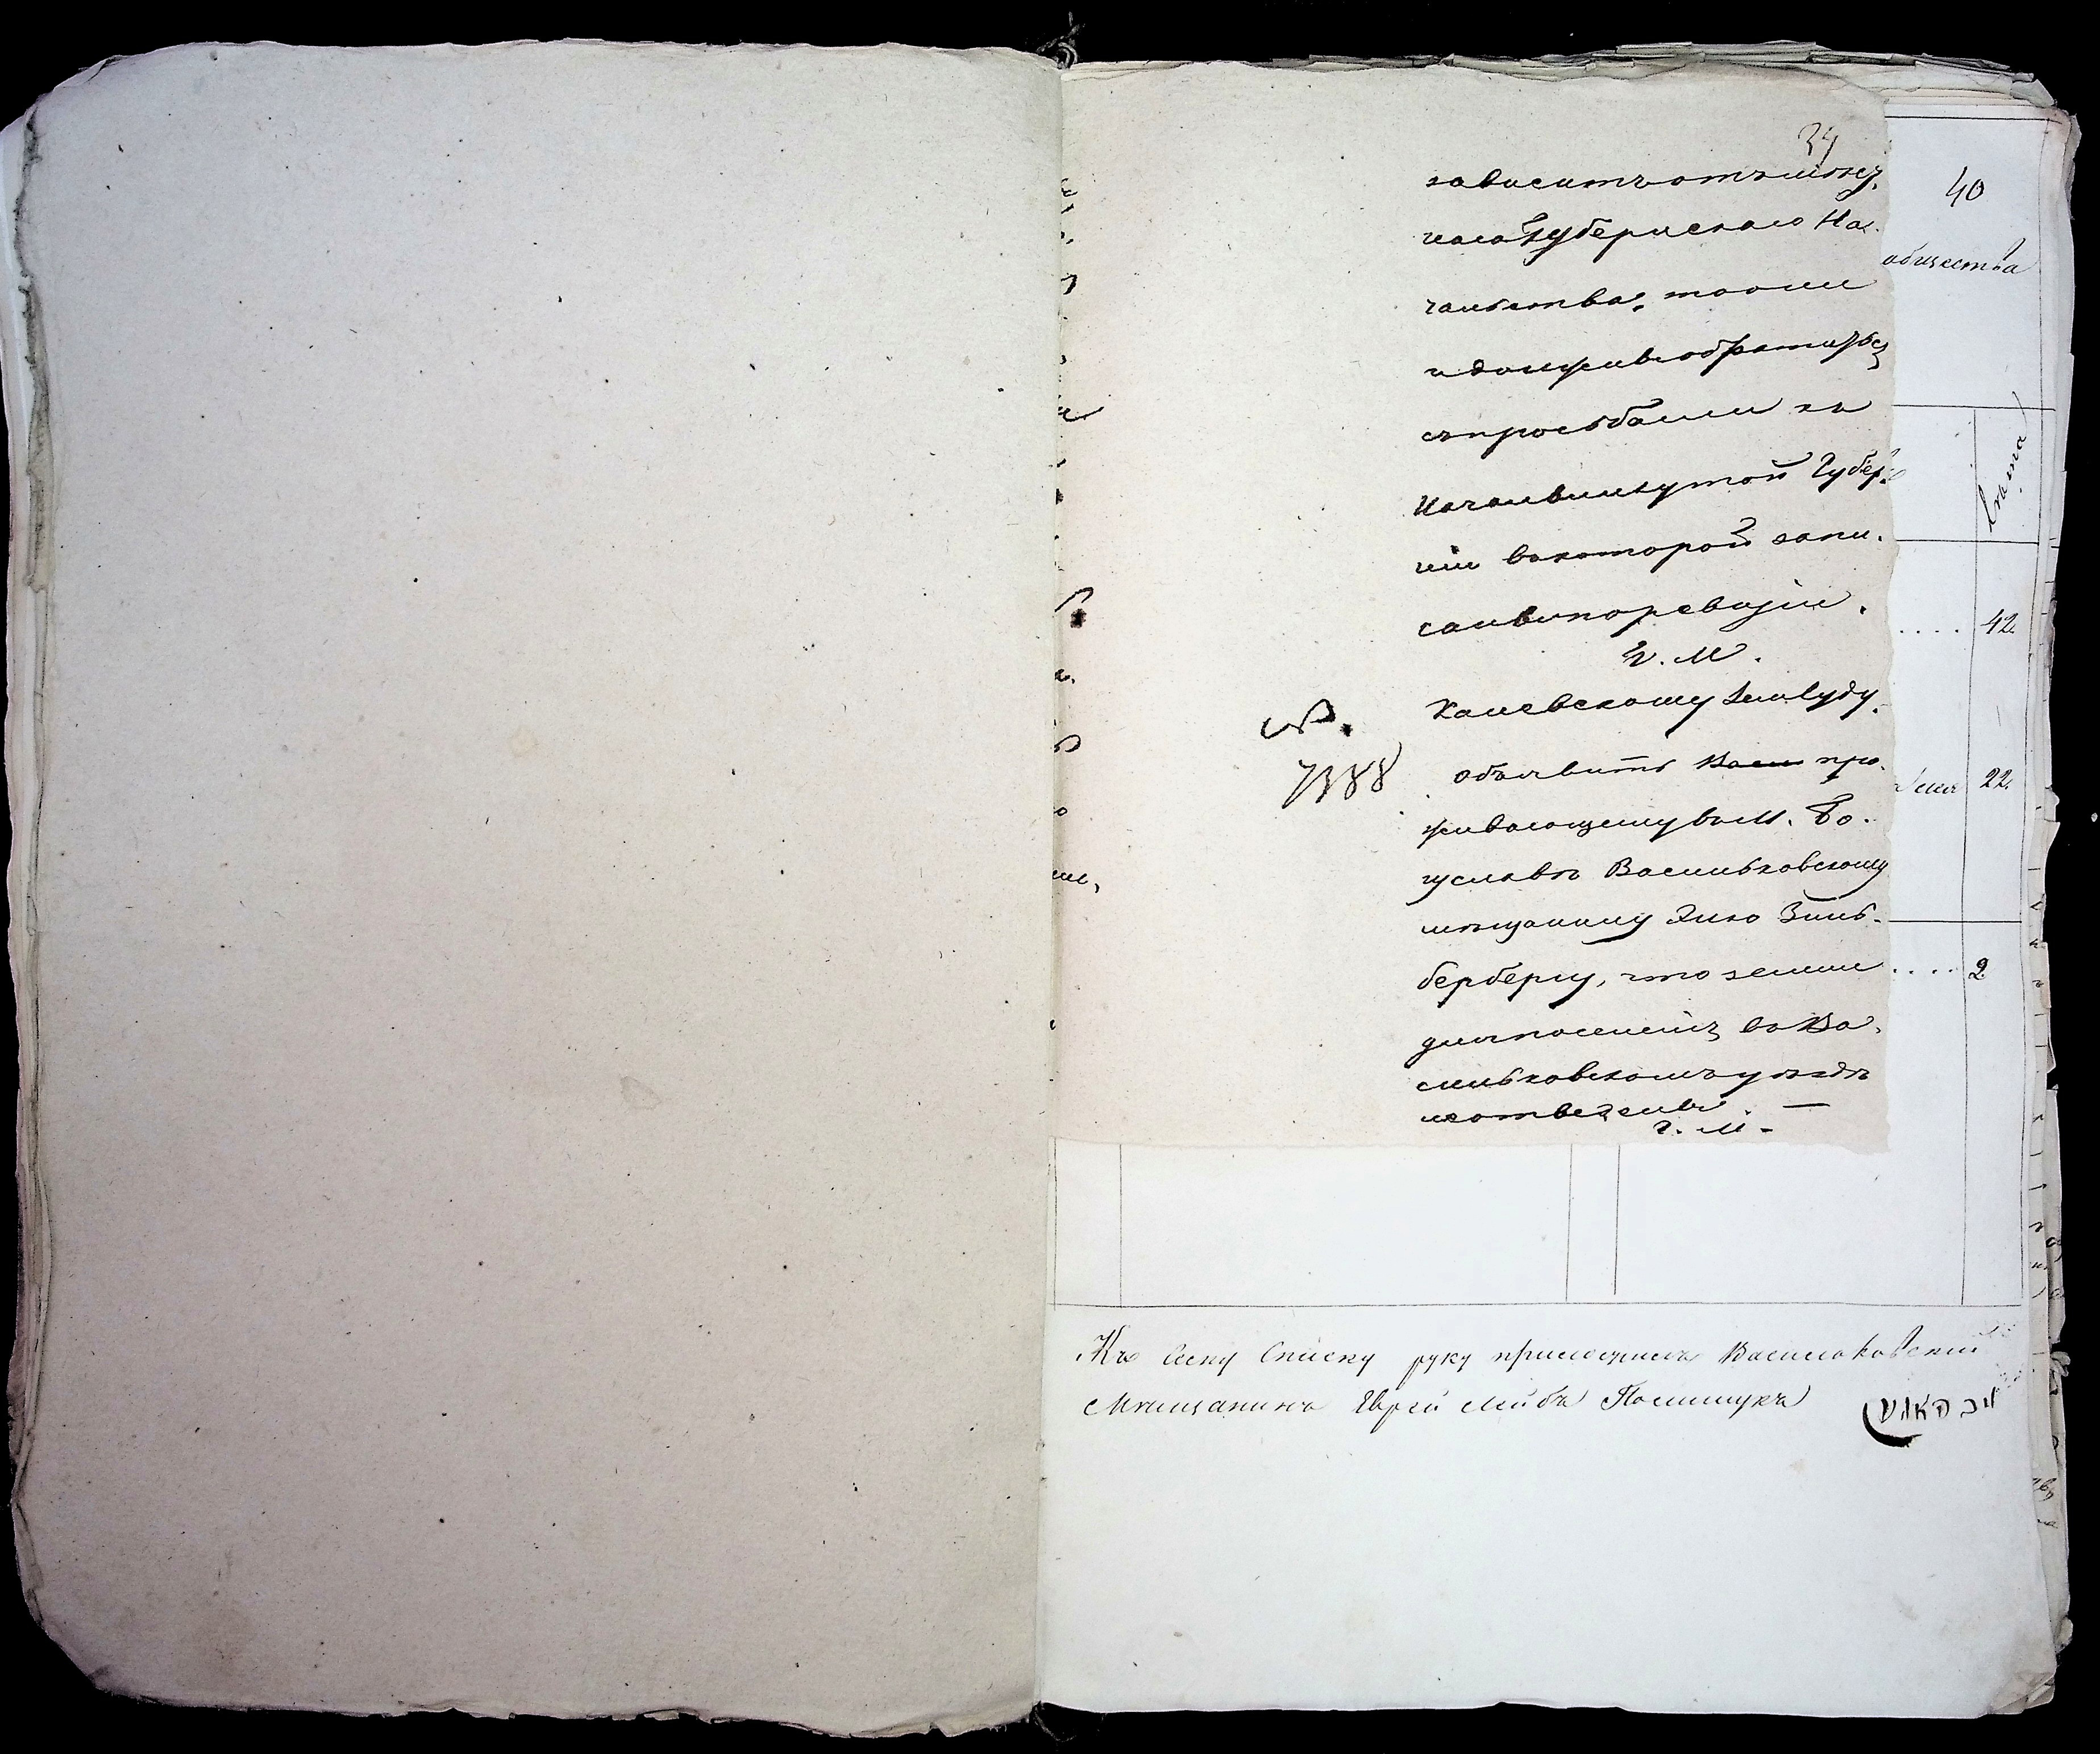 34
зависитъ отъ мѣст
наго Губернскаго На
чальства, то они
и должны обратиться
съ просьбами къ
Начальнику той Губер
ніи въ которой запи
саны по ревизіи.
Г. М.
№. Каневскому Земсуду
7388 объявить про
живающему въ М. Бо
гуславѣ Васильковскому
мѣщанину Элю Зиль
бербергу, что земли
для поселенія въ Ва
сильковскомъ уѣздѣ
не отведены. —
Г. М.
40
общества
лѣта
42.
22.
2.
Къ сему Списку руку приложилъ Васильковскій
Мѣщанинъ Еврей Лейба Полищукъ